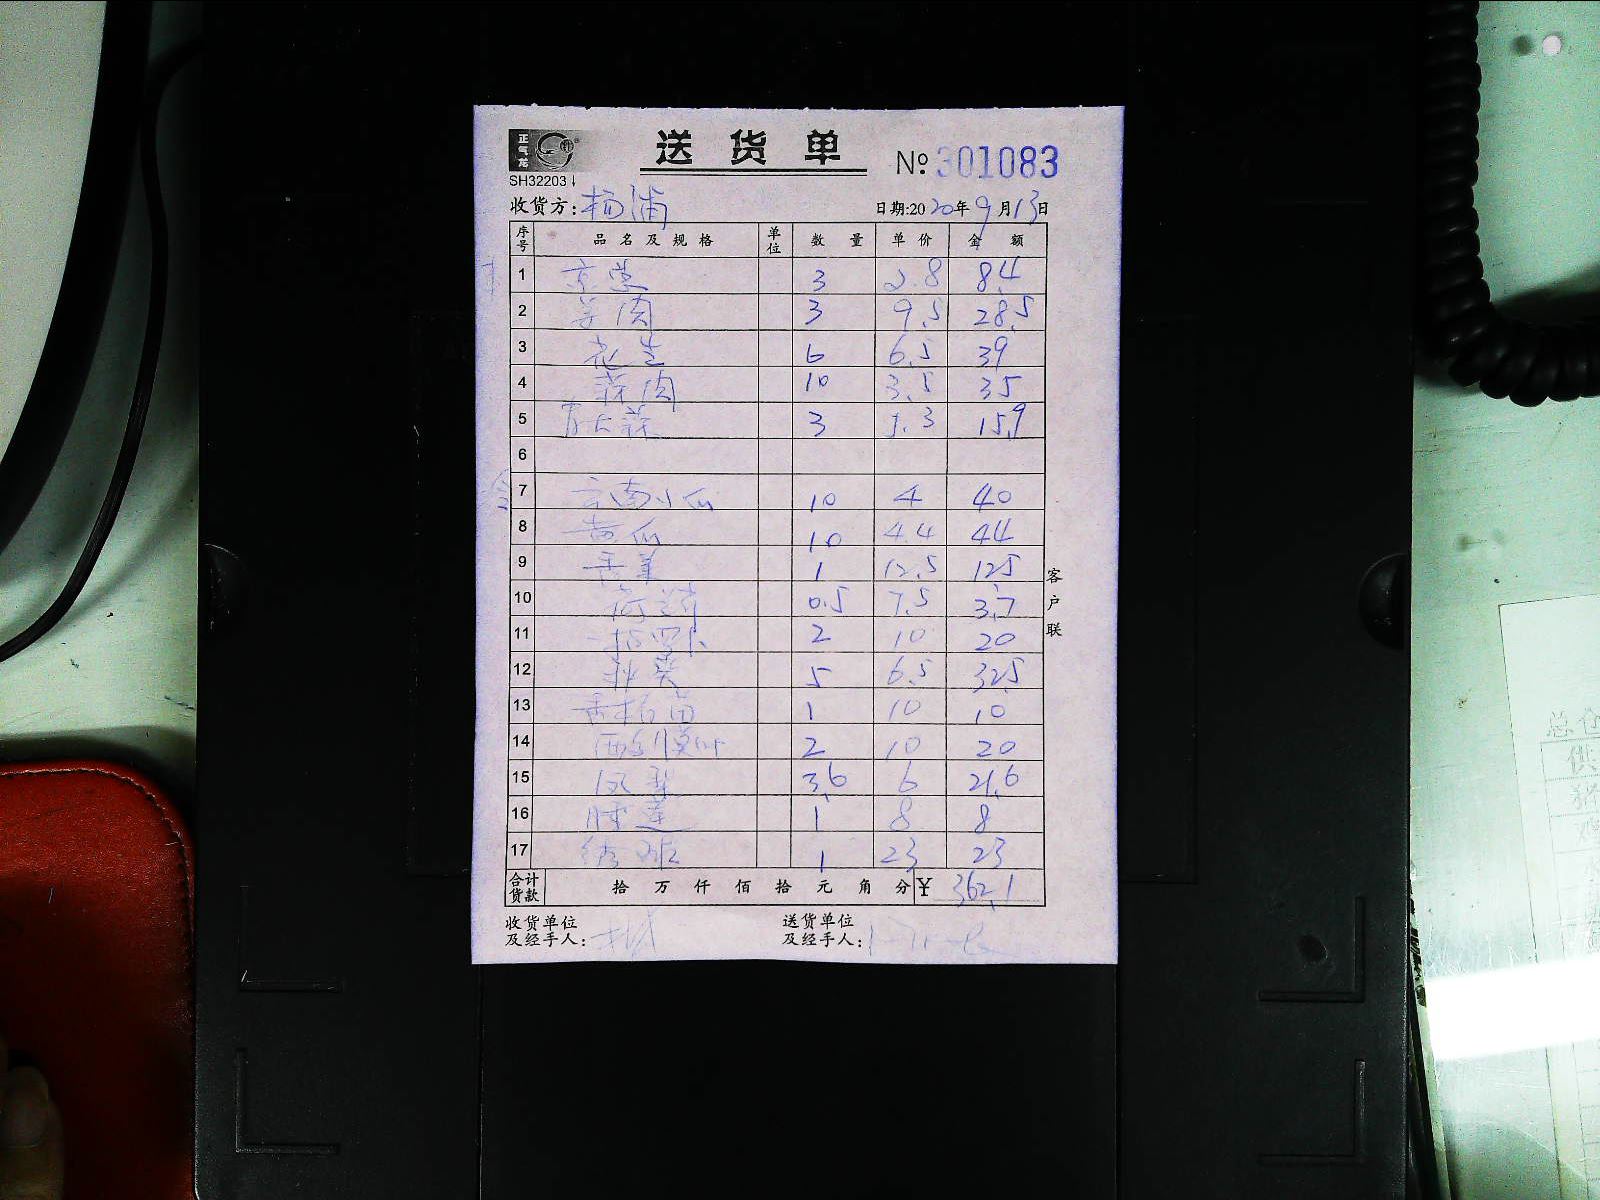 正气龙
送货单
No: 301083
SH32203
收货方: 杨浦 日期:2020年9月13日
序号 品名及规格 单位 数量 单价 金额
1 京葱 3 2.8 8.4
2 姜肉 3 9.5 28.5
3 花生 6 6.5 39
4 蒜肉 10 3.5 35
5 3 5.3 15.9
6
7 云南小瓜 10 4 40
8 黄瓜 10 4.4 44
9 香 1 12.5 12.5
10 0.5 7.5 3.7
11 2 10 20
12 秋葵 5 6.5 32.5
13 1 10 10
14 2 10 20
15 凤梨 3.6 6 21.6
16 1 8 8
17 1 23 23
合计货款 拾万仟佰拾元角分 ¥ 362.1
客户联
收货单位及经手人:
送货单位及经手人: